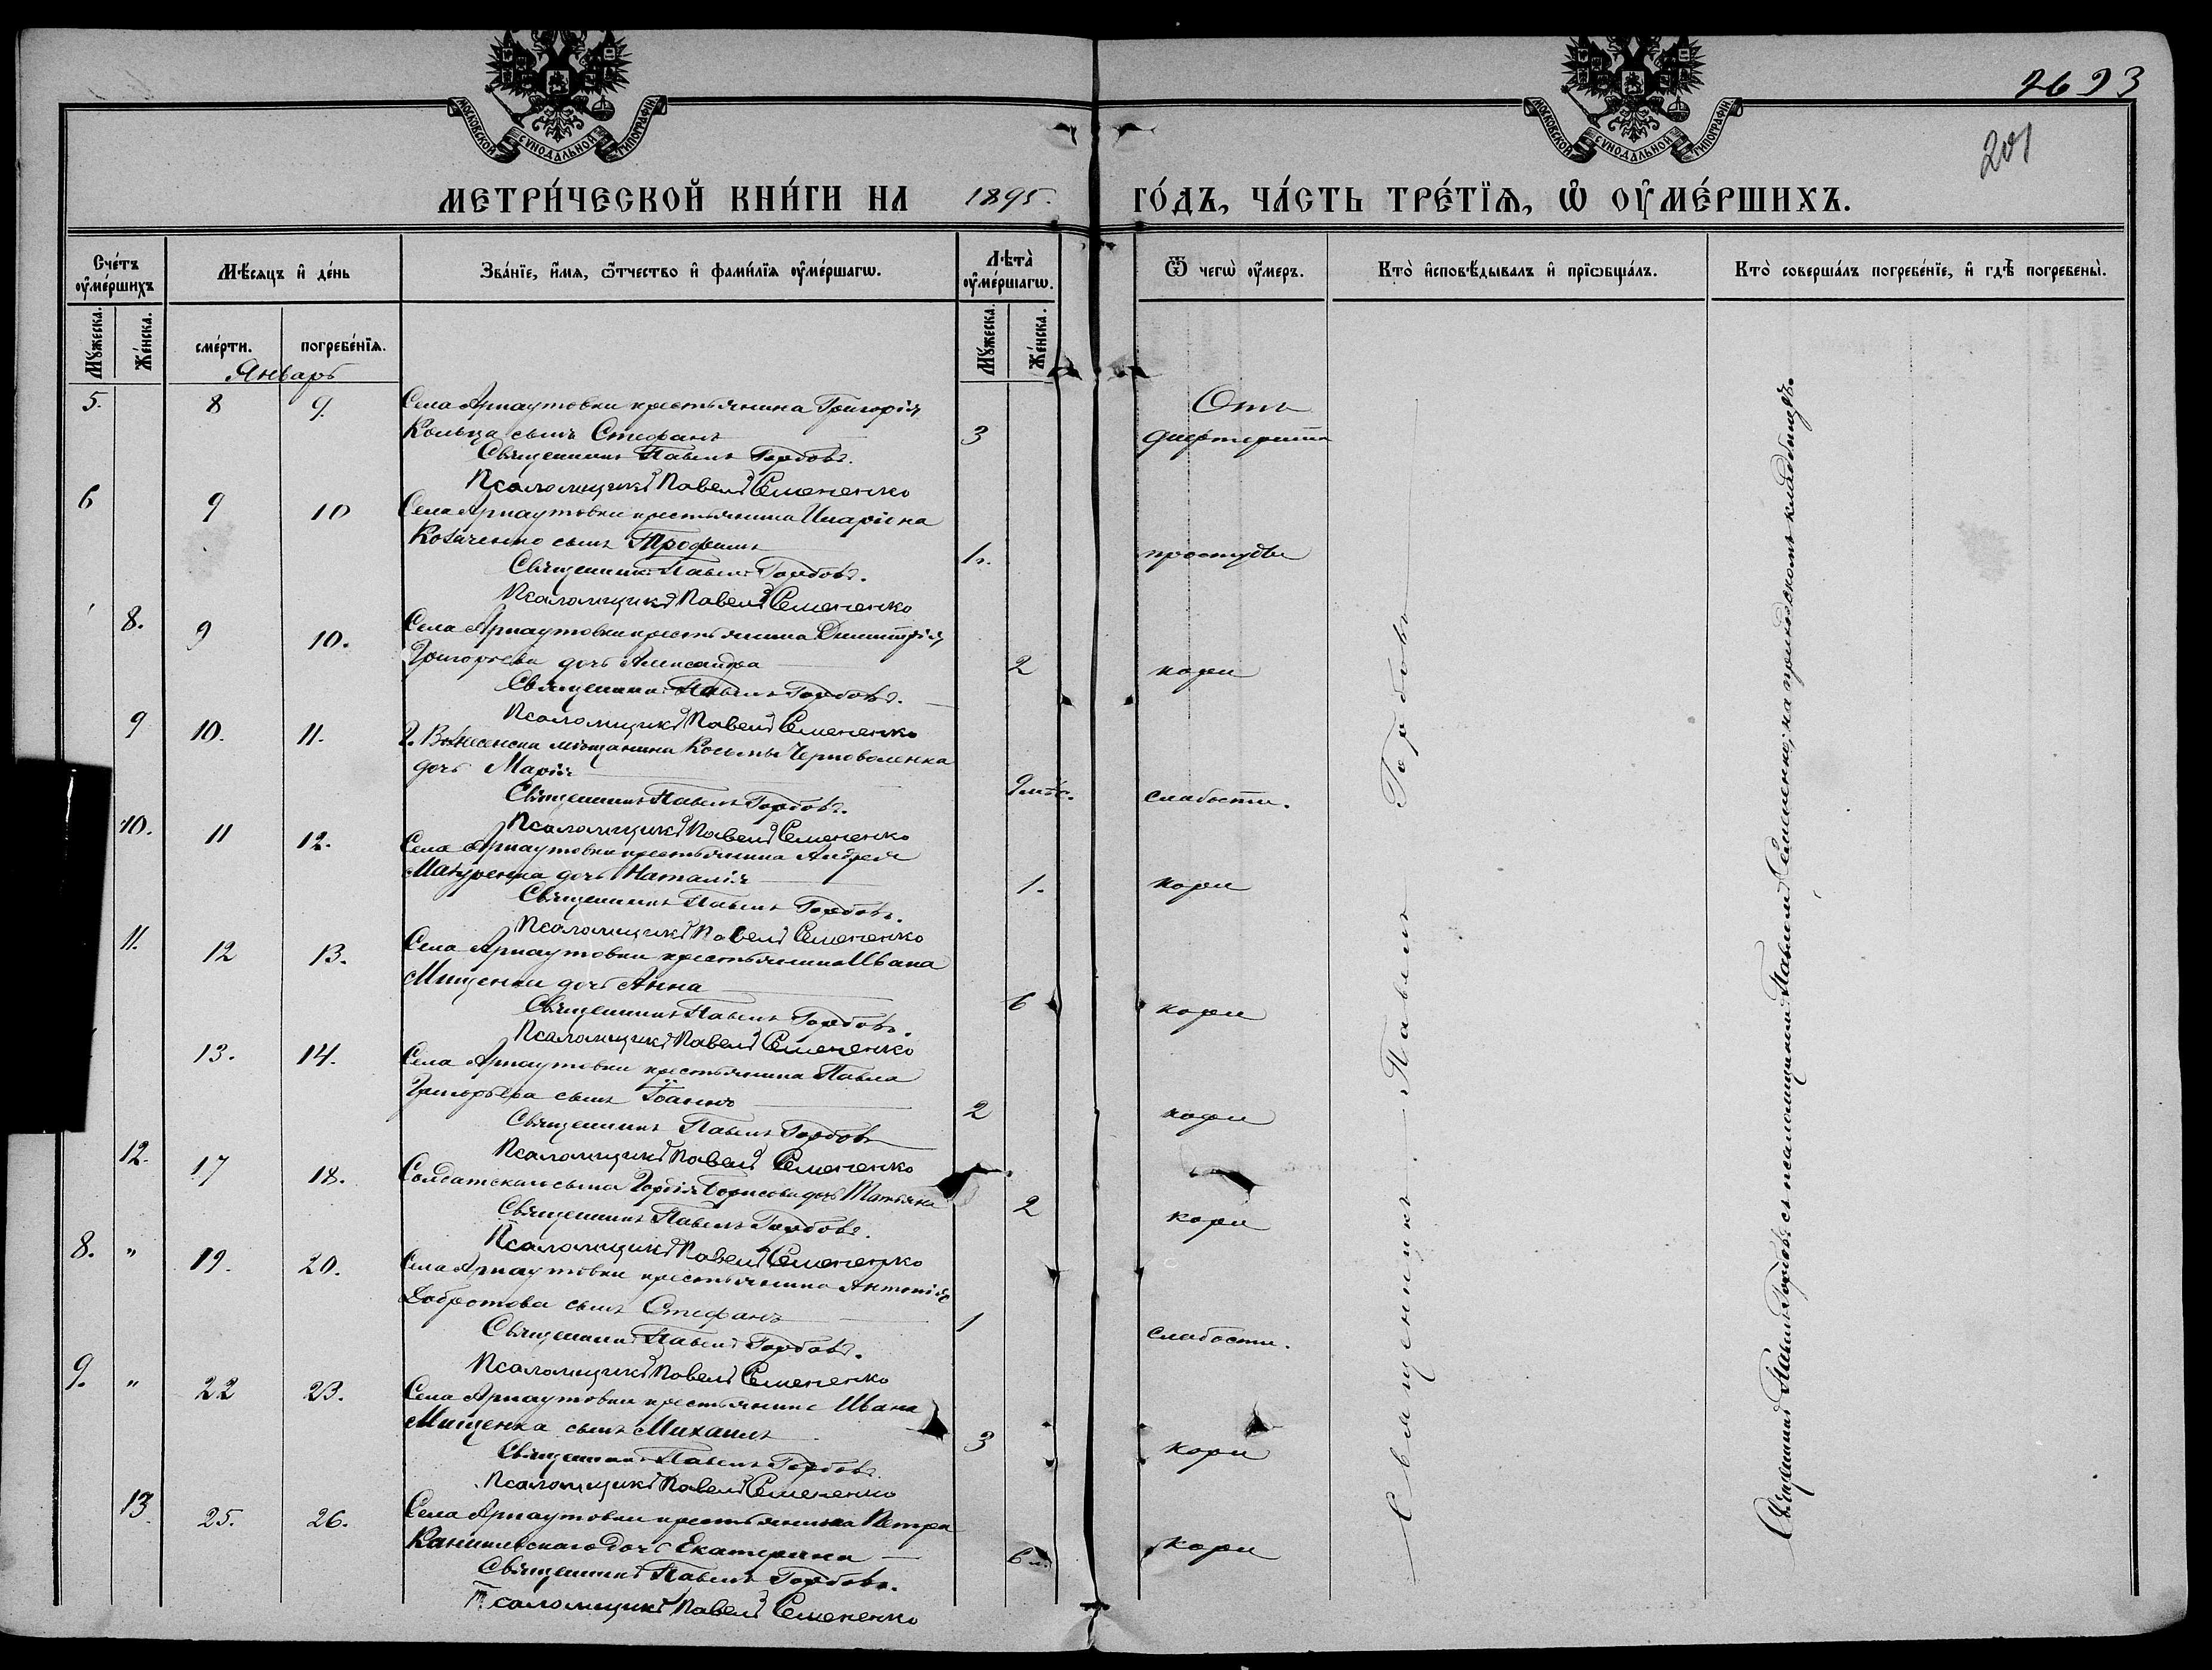 2693
201
МОСКОВСКОЙ СѴНОДАЛЬНОЙ ТИПОГРАФІИ
МОСКОВСКОЙ СѴНОДАЛЬНОЙ ТИПОГРАФІИ
МЕТРИ́ЧЕСКОЙ КНИ́ГИ НА 1895. ГО́ДЪ, ЧА́СТЬ ТРЕ́ТЇѦ, Ѡ҆ ОУ҆МЕ́РШИХЪ.
Сче́тъ оу҆ме́ршихъ
Мѣ́сяцъ и҆ де́нь
Зва́нїе, и҆́мя, ѻ҆́тчество и҆ фами́лїя оу҆ме́ршагѡ.
Лѣ́та оу҆ме́ршагѡ.
Ѿ чегѡ̀ оу҆́меръ.
Кто̀ и҆сповѣ́дывалъ и҆ прїѡбща́лъ.
Кто̀ соверша́лъ погребе́нїе, и҆ гдѣ̀ погребены̀.
Мꙋ́жеска. Же́нска. сме́рти. погребе́нїя. Мꙋ́жеска. Же́нска.
Январь
5. 8 9. Села Арнаутовки крестьянина Григорія Отъ
Кольца сынъ Стефанъ 3 дифтерита
Священникъ Павелъ Горбовъ.
Псаломщикъ Павелъ Семененко
6 9 10 Села Арнаутовки крестьянина Иларіона
Козаченко сынъ Трофимъ 1г. простуды
Священникъ Павелъ Горбовъ.
Псаломщикъ Павелъ Семененко
8. 9 10. Села Арнаутовки крестьянина Димитрія
Григорьева дочь Александра 2 кори
Священникъ Павелъ Горбовъ.
Псаломщикъ Павелъ Семененко
9 10. 11. Г. Вознесенска мѣщанина Косьмы Черноволенка
дочь Марія 9 мѣс. слабости.
Священникъ Павелъ Горбовъ.
Псаломщикъ Павелъ Семененко
10. 11 12. Села Арнаутовки крестьянина Андрея
дочь Наталія 1. кори
Священникъ Павелъ Горбовъ.
Псаломщикъ Павелъ Семененко
11. 12 13. Села Арнаутовки крестьянина Ивана
Мищенки дочь Анна 6 кори
Священникъ Павелъ Горбовъ.
Псаломщикъ Павелъ Семененко
13. 14. Села Арнаутовки крестьянина Павла
Григорьева сынъ Іоаннъ 2 кори
Священникъ Павелъ Горбовъ
Псаломщикъ Павелъ Семененко
12. 17 18. Солдатскаго сына Борисова дочь Татьяна 2 кори
Священникъ Павелъ Горбовъ.
Псаломщикъ Павелъ Семененко
8. " 19. 20. Села Арнаутовки крестьянина Антонія
Добротова сынъ Стефанъ 1 слабости.
Священникъ Павелъ Горбовъ.
Псаломщикъ Павелъ Семененко
9. " 22 23. Села Арнаутовки крестьянина Ивана
Мищенка сынъ Михаилъ 3 кори
Священникъ Павелъ Горбовъ.
Псаломщикъ Павелъ Семененко
13. 25. 26. Села Арнаутовки крестьянина Петра
дочь Екатерина 6 кори
Священникъ Павелъ Горбовъ.
Псаломщикъ Павелъ Семененко
Священникъ Павелъ Горбовъ
Священникъ Павелъ Горбовъ съ псаломщикомъ Павломъ Семененко, на приходскомъ кладбищѣ.